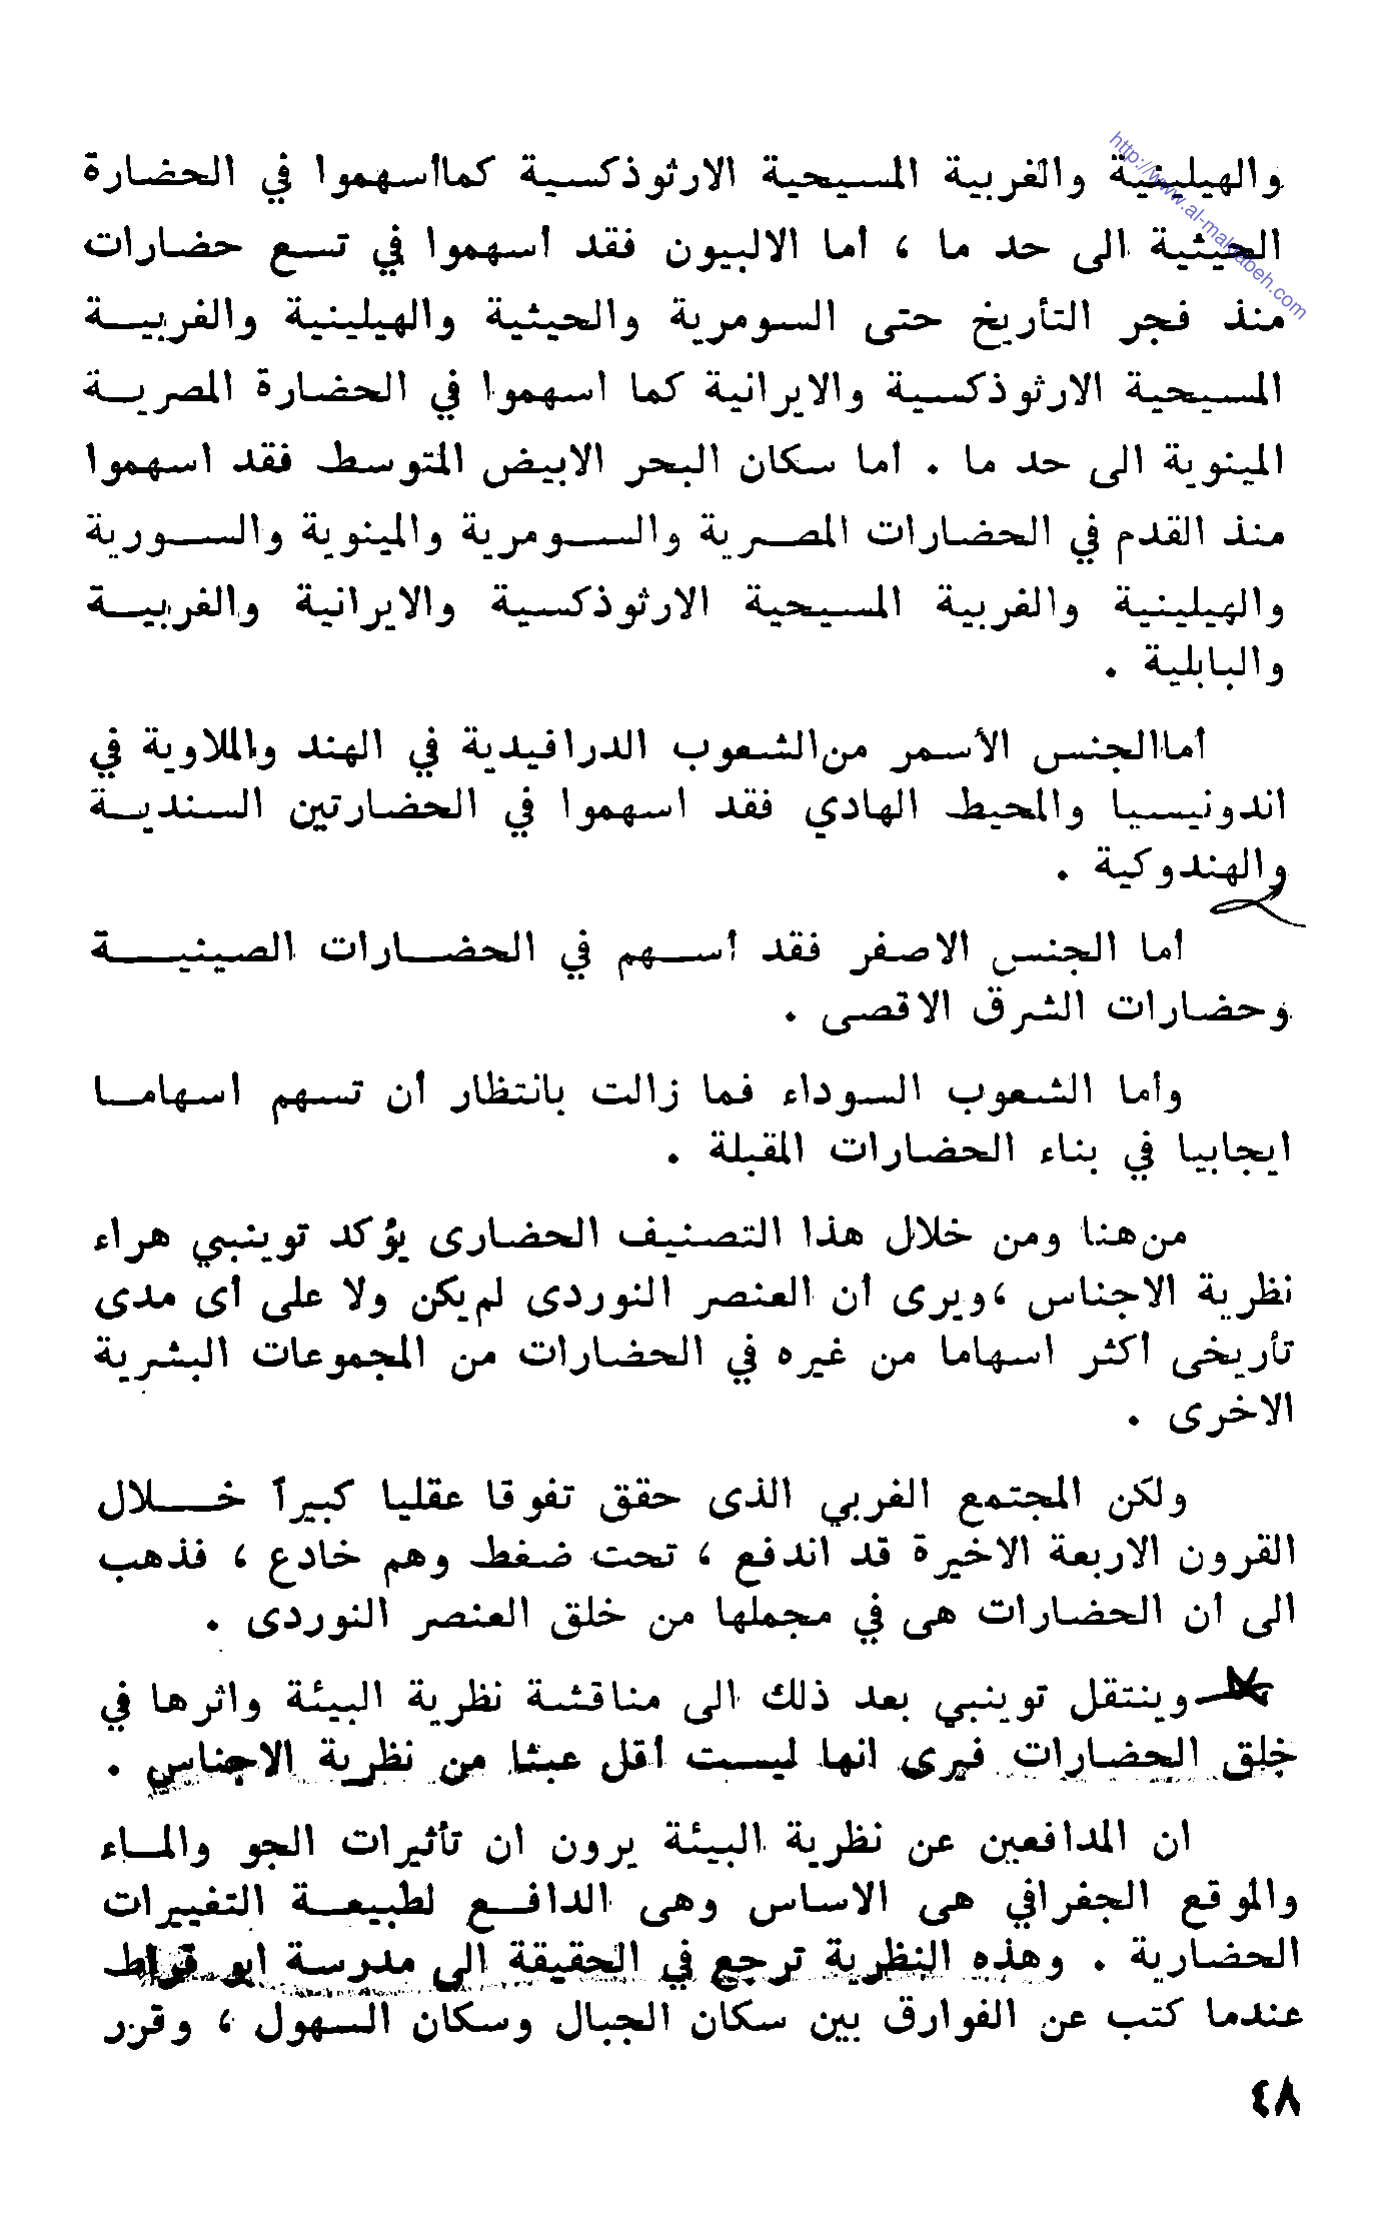 http://www.al-maktabeh.com
والهيلينية والغربية المسيحية الارثوذكسية كماأسهموا في الحضارة
الحيثية الى حد ما ، أما الالبيون فقد أسهموا في تسع حضارات
منذ فجر التأريخ حتى السومرية والحيثية والهيلينية والغربيــة
المسيحية الارثوذكسية والايرانية كما اسهموا في الحضارة المصريــة
المينوية الى حد ما . أما سكان البحر الابيض المتوسط فقد اسهموا
منذ القدم في الحضارات المصــرية والســومرية والمينوية والســورية
والهيلينية والغربية المسيحية الارثوذكسية والايرانية والغربيــة
والبابلية .
أماالجنس الأسمر من الشعوب الدرافيدية في الهند والملاوية في
اندونيسيا والمحيط الهادي فقد اسهموا في الحضارتين السنديــة
والهندوكية .
أما الجنس الاصفر فقد أســهم في الحضــارات الصينيــــة
وحضارات الشرق الاقصى .
وأما الشعوب السوداء فما زالت بانتظار أن تسهم اسهامــا
ايجابيا في بناء الحضارات المقبلة .
من هنا ومن خلال هذا التصنيف الحضارى يؤكد توينبي هراء
نظرية الاجناس ،ويرى أن العنصر النوردى لم يكن ولا على أى مدى
تأريخى أكثر اسهاما من غيره في الحضارات من المجموعات البشرية
الاخرى .
ولكن المجتمع الغربي الذى حقق تفوقا عقليا كبيراً خــــلال
القرون الاربعة الاخيرة قد اندفع ، تحت ضغط وهم خادع ، فذهب
الى أن الحضارات هى في مجملها من خلق العنصر النوردى .
وينتقل توينبي بعد ذلك الى مناقشة نظرية البيئة واثرها في
خلق الحضارات فيرى انها ليست أقل عبثا من نظرية الاجناس .
ان المدافعين عن نظرية البيئة يرون ان تأثيرات الجو والمــاء
والموقع الجغرافي هى الاساس وهى الدافــع لطبيعــة التغييرات
الحضارية . وهذه النظرية ترجع في الحقيقة الى مدرسة ابو قراط
عندما كتب عن الفوارق بين سكان الجبال وسكان السهول ، وقرر
٤٨